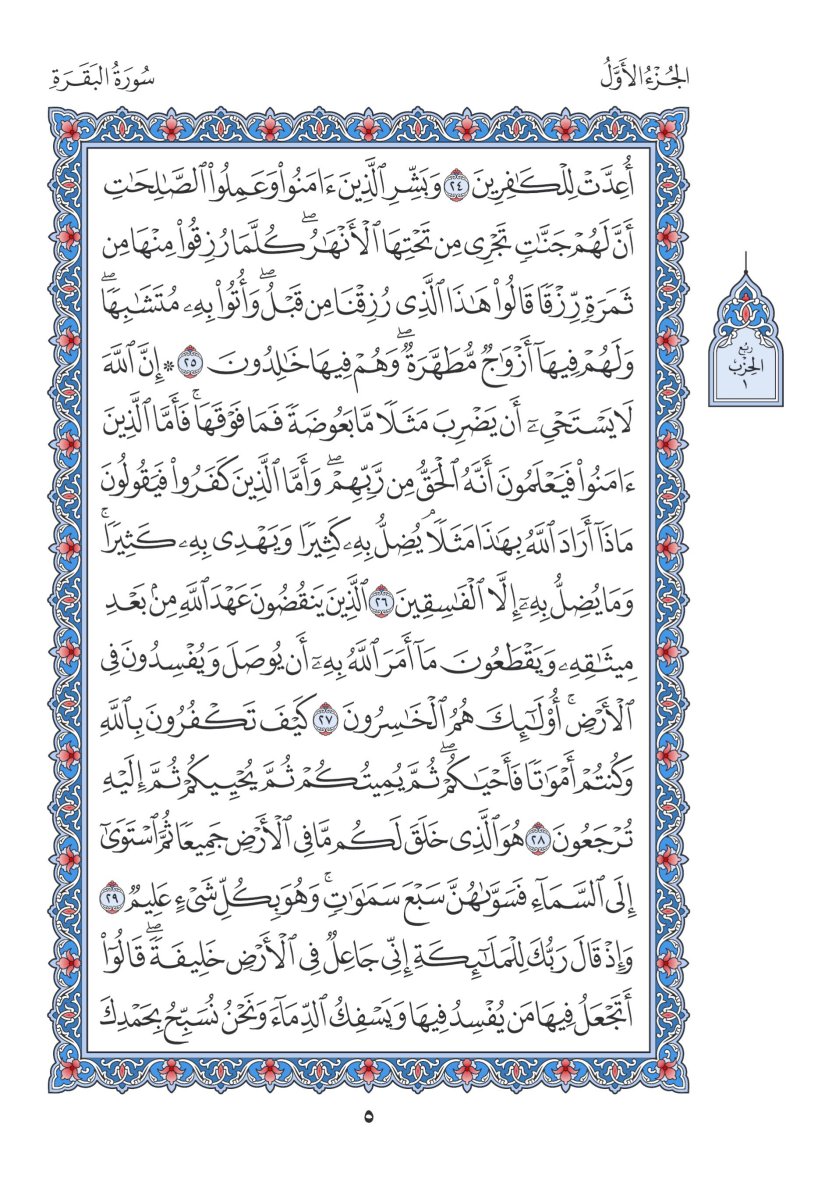 الجُزْءُ الأَوَّلُ
سُورَةُ البَقَرَةِ
أُعِدَّتۡ لِلۡكَٰفِرِينَ ٢٤ وَبَشِّرِ ٱلَّذِينَ ءَامَنُواْ وَعَمِلُواْ ٱلصَّٰلِحَٰتِ
أَنَّ لَهُمۡ جَنَّٰتٖ تَجۡرِي مِن تَحۡتِهَا ٱلۡأَنۡهَٰرُۖ كُلَّمَا رُزِقُواْ مِنۡهَا مِن
ثَمَرَةٖ رِّزۡقٗا قَالُواْ هَٰذَا ٱلَّذِي رُزِقۡنَا مِن قَبۡلُۖ وَأُتُواْ بِهِۦ مُتَشَٰبِهٗاۖ
وَلَهُمۡ فِيهَآ أَزۡوَٰجٞ مُّطَهَّرَةٞۖ وَهُمۡ فِيهَا خَٰلِدُونَ ٢٥ ۞ إِنَّ ٱللَّهَ
لَا يَسۡتَحۡيِۦٓ أَن يَضۡرِبَ مَثَلٗا مَّا بَعُوضَةٗ فَمَا فَوۡقَهَاۚ فَأَمَّا ٱلَّذِينَ
ءَامَنُواْ فَيَعۡلَمُونَ أَنَّهُ ٱلۡحَقُّ مِن رَّبِّهِمۡۖ وَأَمَّا ٱلَّذِينَ كَفَرُواْ فَيَقُولُونَ
مَاذَآ أَرَادَ ٱللَّهُ بِهَٰذَا مَثَلٗاۘ يُضِلُّ بِهِۦ كَثِيرٗا وَيَهۡدِي بِهِۦ كَثِيرٗاۚ
وَمَا يُضِلُّ بِهِۦٓ إِلَّا ٱلۡفَٰسِقِينَ ٢٦ ٱلَّذِينَ يَنقُضُونَ عَهۡدَ ٱللَّهِ مِنۢ بَعۡدِ
مِيثَٰقِهِۦ وَيَقۡطَعُونَ مَآ أَمَرَ ٱللَّهُ بِهِۦٓ أَن يُوصَلَ وَيُفۡسِدُونَ فِي
ٱلۡأَرۡضِۚ أُوْلَٰٓئِكَ هُمُ ٱلۡخَٰسِرُونَ ٢٧ كَيۡفَ تَكۡفُرُونَ بِٱللَّهِ
وَكُنتُمۡ أَمۡوَٰتٗا فَأَحۡيَٰكُمۡۖ ثُمَّ يُمِيتُكُمۡ ثُمَّ يُحۡيِيكُمۡ ثُمَّ إِلَيۡهِ
تُرۡجَعُونَ ٢٨ هُوَ ٱلَّذِي خَلَقَ لَكُم مَّا فِي ٱلۡأَرۡضِ جَمِيعٗا ثُمَّ ٱسۡتَوَىٰٓ
إِلَى ٱلسَّمَآءِ فَسَوَّىٰهُنَّ سَبۡعَ سَمَٰوَٰتٖۚ وَهُوَ بِكُلِّ شَيۡءٍ عَلِيمٞ ٢٩
وَإِذۡ قَالَ رَبُّكَ لِلۡمَلَٰٓئِكَةِ إِنِّي جَاعِلٞ فِي ٱلۡأَرۡضِ خَلِيفَةٗۖ قَالُوٓاْ
أَتَجۡعَلُ فِيهَا مَن يُفۡسِدُ فِيهَا وَيَسۡفِكُ ٱلدِّمَآءَ وَنَحۡنُ نُسَبِّحُ بِحَمۡدِكَ
رُبْعُ
الحِزْبِ
١
٥